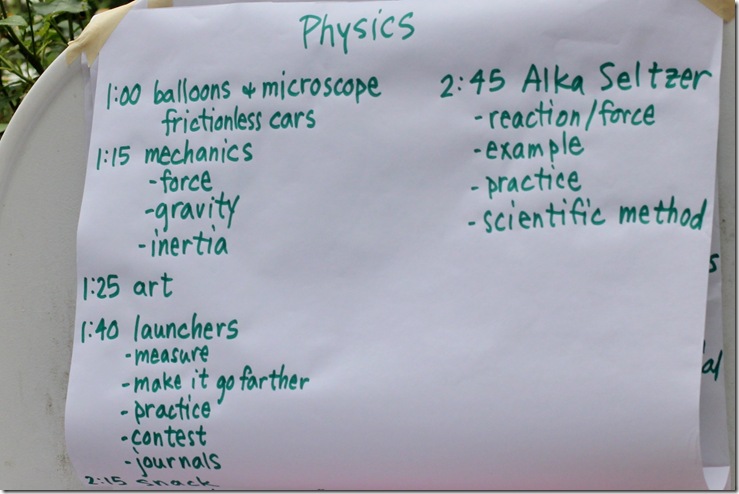 Physics
1:00 balloons & microscope
frictionless cars
1:15 mechanics
-force
-gravity
-inertia
1:25 art
1:40 launchers
-measure
-make it go farther
-practice
-contest
-journals
2:15 snack
2:45 Alka Seltzer
-reaction/force
-example
-practice
-scientific method
s
al